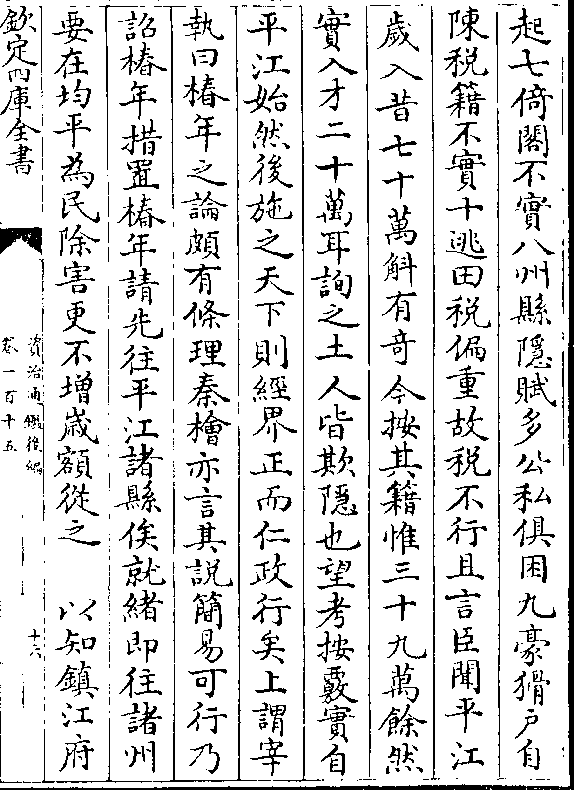 起七倚閣不實八州縣隱賦多公私俱困九豪猾户自
陳税籍不實十逃田税偏重故税不行且言臣聞平江
歲入昔七十萬斛有竒今按其籍惟三十九萬餘然
實入才二十萬耳詢之土人皆欺隱也望考按覈實自
平江始然後施之天下則經界正而仁政行矣上謂宰
執曰椿年之論頗有條理秦檜亦言其説簡易可行乃
詔椿年措置椿年請先往平江諸縣俟就緒即往諸州
要在均平為民除害更不增歳額從之　以知鎮江府
欽定四庫全書
資治通鑑後編
卷一百十五
十六